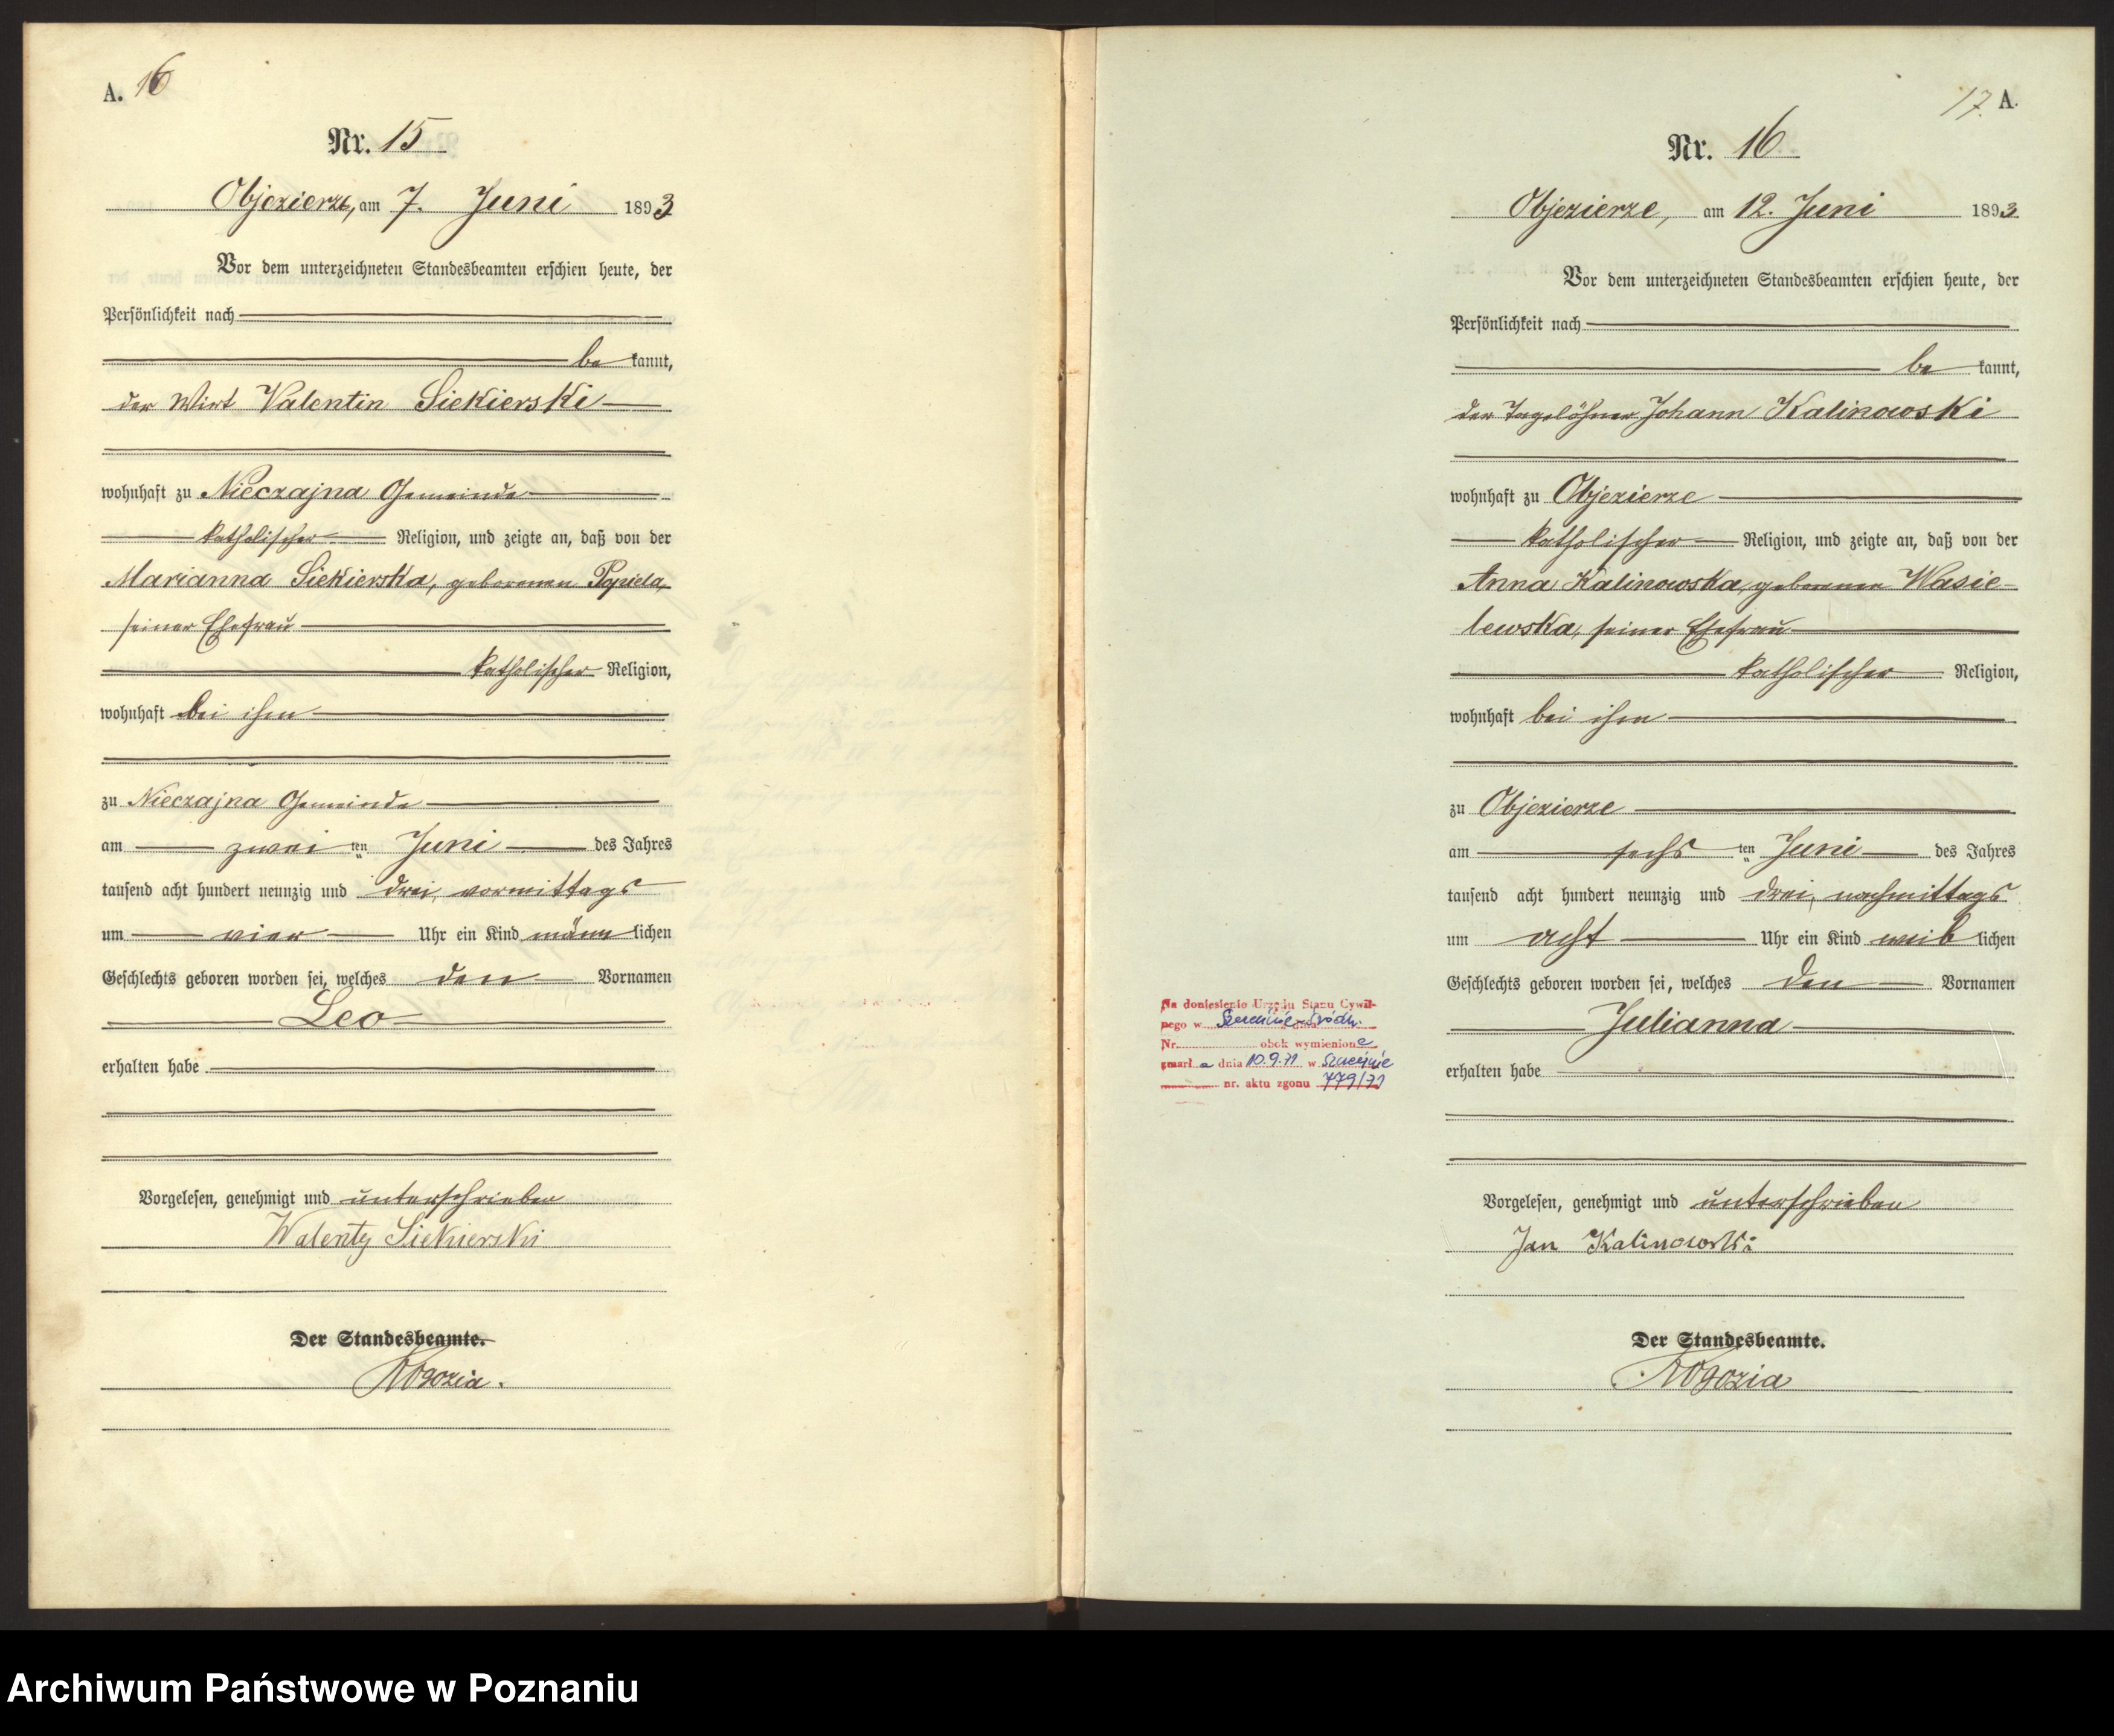 A. 16
Nr. 15
Objezierze, am 7. Juni 1893
Vor dem unterzeichneten Standesbeamten erschien heute, der
Persönlichkeit nach
be kannt,
der Wirt Valentin Siekierski
wohnhaft zu Nieczajna Gemeinde
katholischer Religion, und zeigte an, daß von der
Marianna Siekierska, geborenen
seiner Ehefrau
katholischer Religion,
wohnhaft bei ihm
zu Nieczajna Gemeinde
am zwei ten Juni des Jahres
tausend acht hundert neunzig und drei, vormittags
um vier Uhr ein Kind männ lichen
Geschlechts geboren worden sei, welches den Vornamen
Leo
erhalten habe
Vorgelesen, genehmigt und unterschrieben
Walenty Siekierski
Der Standesbeamte.
Rogozia.
17. A.
Nr. 16
Objezierze, am 12. Juni 1893
Vor dem unterzeichneten Standesbeamten erschien heute, der
Persönlichkeit nach
be kannt,
der Tagelöhner Johann Kalinowski
wohnhaft zu Objezierze
katholischer Religion, und zeigte an, daß von der
Anna Kalinowska, geborenen Wasie-
lewska, seiner Ehefrau
katholischer Religion,
wohnhaft bei ihm
zu Objezierze
am sechs ten Juni des Jahres
tausend acht hundert neunzig und drei, nachmittags
um acht Uhr ein Kind weib lichen
Geschlechts geboren worden sei, welches den Vornamen
Julianna
erhalten habe
Vorgelesen, genehmigt und unterschrieben
Jan Kalinowski
Der Standesbeamte.
Rogozia
Na doniesienie Urzędu Stanu Cywil-
nego w Szczecinie-Śródm.
Nr. obok wymienion e
zmarł a dnia 10.9.71 w Szczecinie
nr. aktu zgonu 779/71
Archiwum Państwowe w Poznaniu